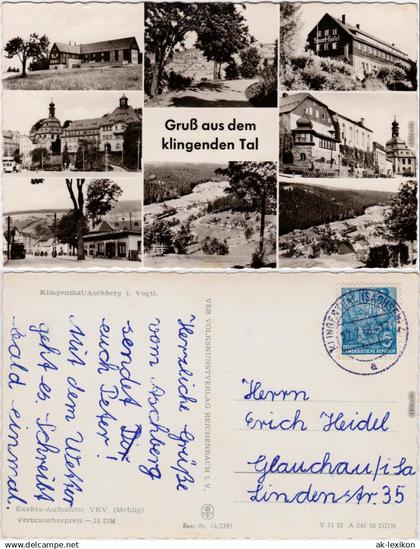 Sport-Hotel
Gruß aus dem
klingenden Tal
Klingenthal/Aschberg i. Vogtl.
Herzliche Grüße
vom Aschberg
sendet
euch Peter!
Mit dem Wetter
geht es. Schreibt
bald einmal.
VEB VOLKSKUNSTVERLAG REICHENBACH i. V.
Herrn
Erich Heidel
Glauchau i/Sa
Lindenstr. 35
KLINGENTHAL (SACHS)
a
5
DEUTSCHE
DEMOKRATISCHE REPUBLIK
Exakta-Aufnahme VKV (Mehlig)
Verbraucherpreis —,15 DM
Best.-Nr. 14/2391
V 11 28 A 240 58 DDR
www.ak-lexikon.de
© ak-lexikon